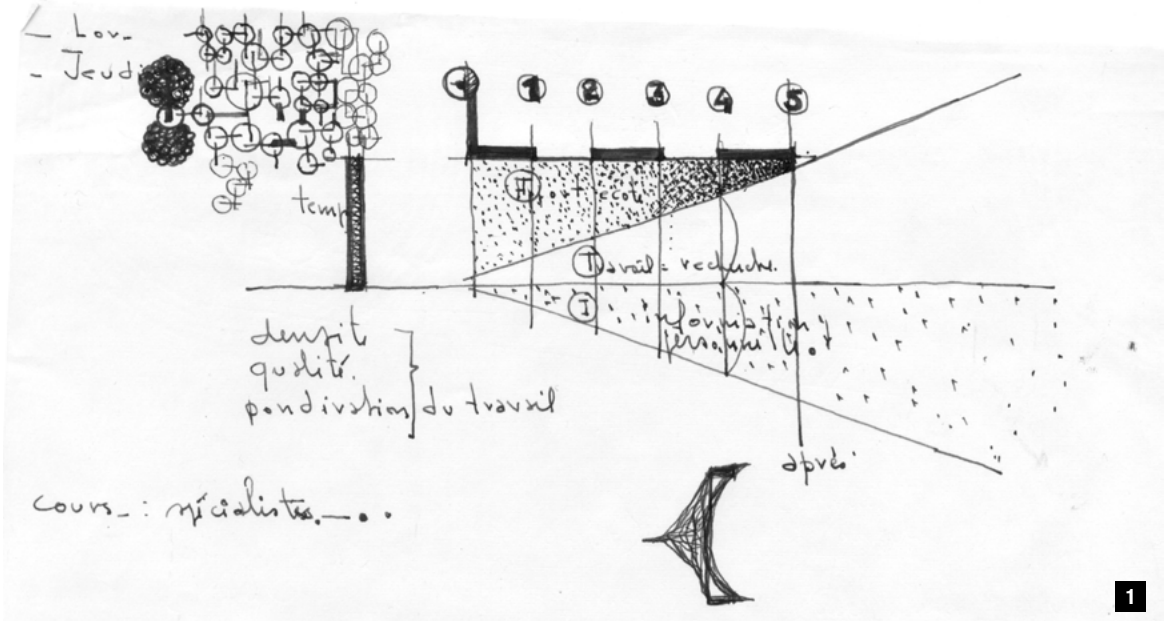 - Lou-
- Jeudi
1 2 3 4 5
temp
Travail = recherche.
I
information
personnelle.
densité
qualité.
pondération du travail
après
cours - : spécialistes - . .
1